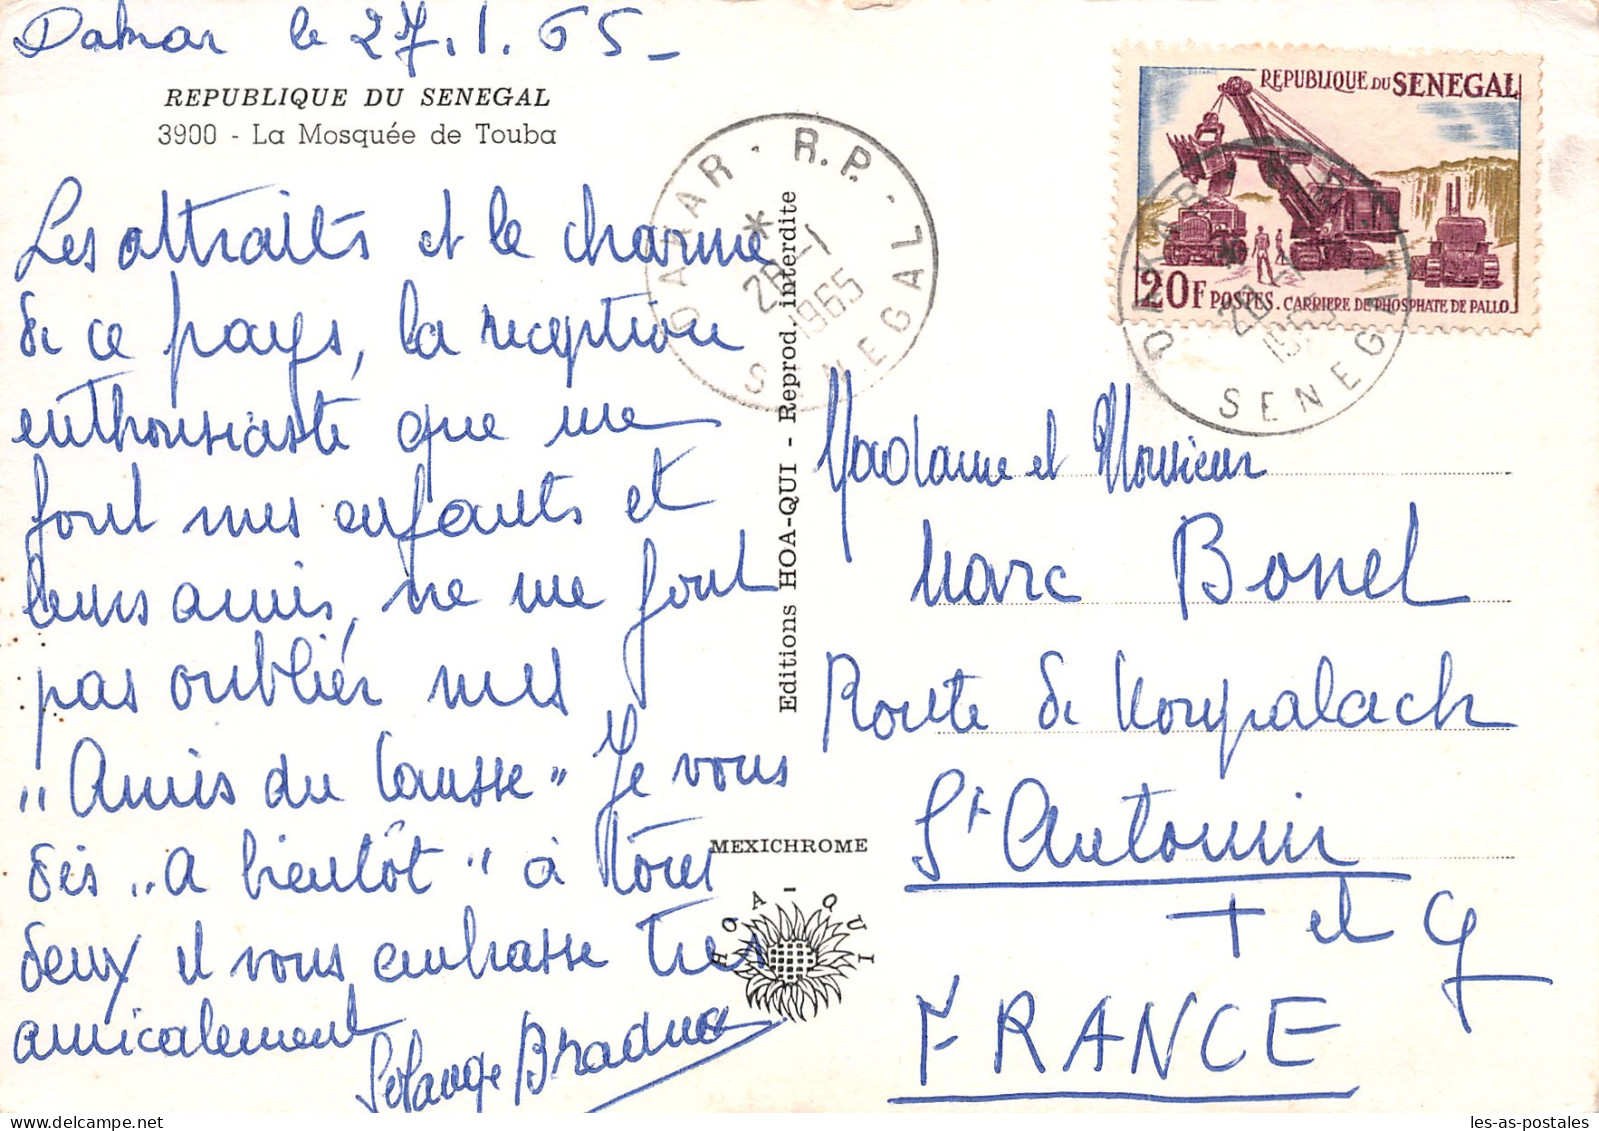 Dakar le 27.1.65_
REPUBLIQUE DU SENEGAL
3900 - La Mosquée de Touba
Les attraits et le charme
de ce pays, la reception
enthousiaste que me
font mes enfants et
leurs amis, ne me font
pas oublier mes
"Amis du Causse" Je vous
dis "a bientôt" à tous
deux et vous embrasse tres
amicalement
Solange
Editions HOA-QUI - Reprod. interdite
MEXICHROME
HOA-QUI
DAKAR - R.P. - SENEGAL
* 28-1 1965
REPUBLIQUE DU SENEGAL
20F POSTES. CARRIERE DE PHOSPHATE DE PALLO
DAKAR R.P. SENEGAL
Madame et Monsieur
Marc Bonel
Route de
St Antonin
T et G
FRANCE
les-as-postales